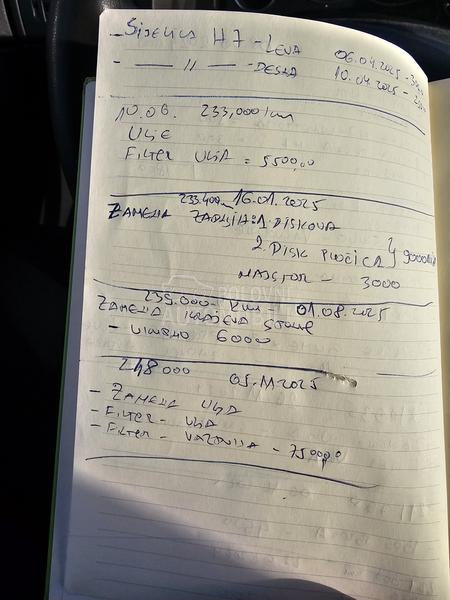 - SIJELICA H7 - LEVA 06.04.2025 -
- — 11 — - DESNA 10.04.2025 -
10.06. 233,000 km
ULJE
FILTER ULJA = 5500,00
233.400 16.01.2025
ZAMENA ZADNJIH: 1. DISKOVA
2. DISK PLOČICA } 9000
MAJSTOR - 3000
235.000 - KM - 01.08.2025
ZAMENA KRAJEVA SPONE
- UKUPNO 6000
248 000 05.11.2025
- ZAMENA ULJA
- FILTER - ULJA
- FILTER - VAZDUHA - 7500,0